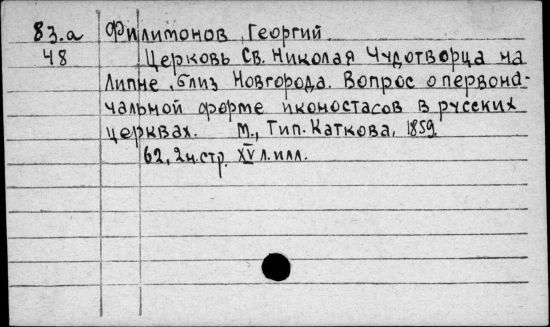 83.а Филимонов, Георгий.
48 Церковь Св. Николая Чудотворца на
Липне, близ Новгорода. Вопрос о первона-
чальной форме иконостасов в русских
церквах. М., Тип. Каткова, 1859.
62, 2н.стр. XV л.илл.